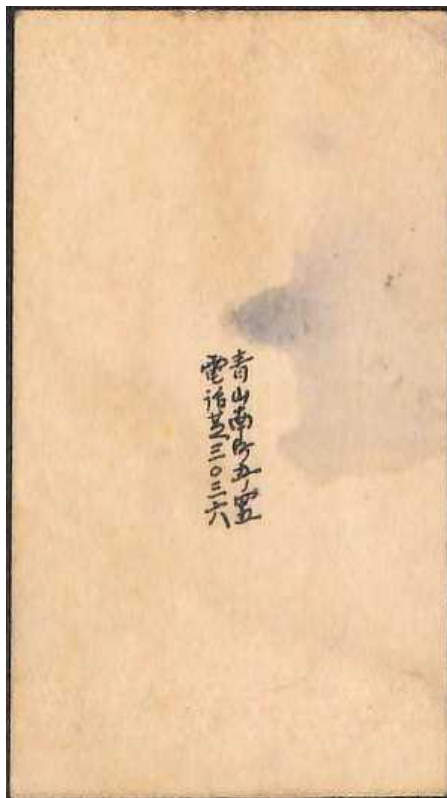 青山南町五ノ四五
電話芝三〇三六